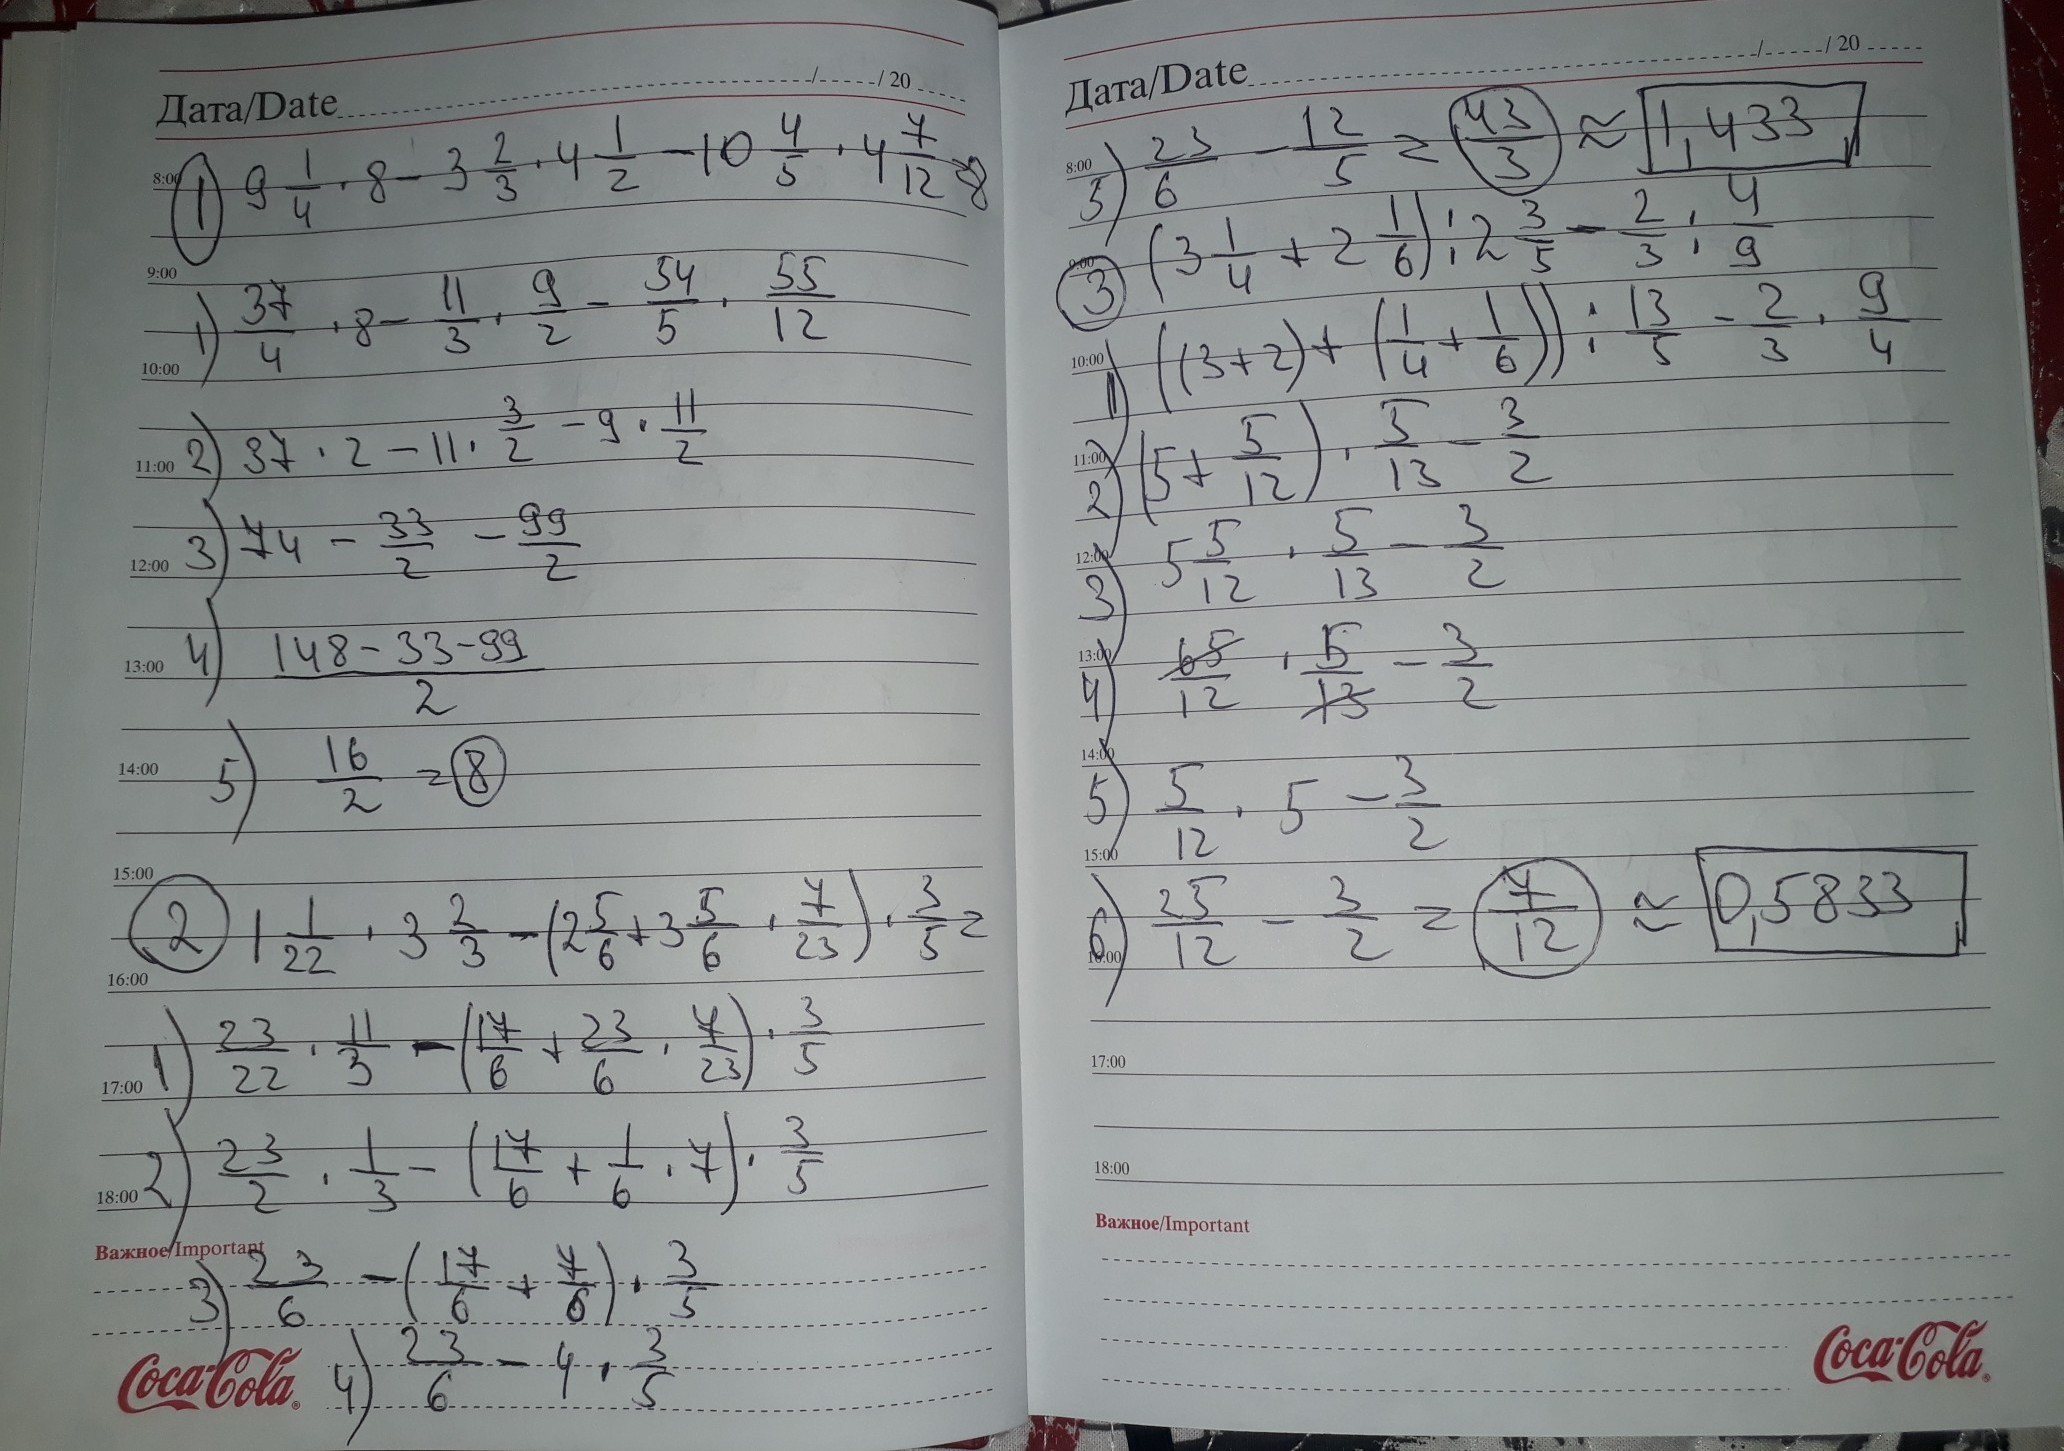 Дата/Date / / 20
8:00 1) 9 1/4 · 8 - 3 2/3 · 4 1/2 - 10 4/5 · 4 7/12 = 8
9:00
1) 37/4 · 8 - 11/3 · 9/2 - 54/5 · 55/12
10:00
2) 37 · 2 - 11 · 3/2 - 9 · 11/2
11:00
3) 74 - 33/2 - 99/2
12:00
4) (148-33-99)/2
13:00
5) 16/2 = 8
14:00
15:00
2 1 1/22 · 3 2/3 - (2 5/6 + 3 5/6 · 7/23) · 3/5 =
16:00
1) 23/22 · 11/3 - (17/6 + 23/6 · 7/23) · 3/5
17:00
2) 23/2 · 1/3 - (17/6 + 1/6 · 7) · 3/5
18:00
Важное/Important
3) 23/6 - (17/6 + 7/6) · 3/5
4) 23/6 - 4 · 3/5
Coca-Cola®
Дата/Date / / 20
8:00
5) 23/6 - 12/5 = 43/3 ≈ 1,433
9:00
3 (3 1/4 + 2 1/6) : 2 3/5 - 2/3 : 4/9
10:00
1) ((3+2) + (1/4 + 1/6)) : 13/5 - 2/3 · 9/4
11:00
2) (5 + 5/12) · 5/13 - 3/2
12:00
3) 5 5/12 · 5/13 - 3/2
13:00
4) 65/12 · 5/13 - 3/2
14:00
5) 5/12 · 5 - 3/2
15:00
6) 25/12 - 3/2 = 7/12 ≈ 0,5833
16:00
17:00
18:00
Важное/Important
Coca-Cola®